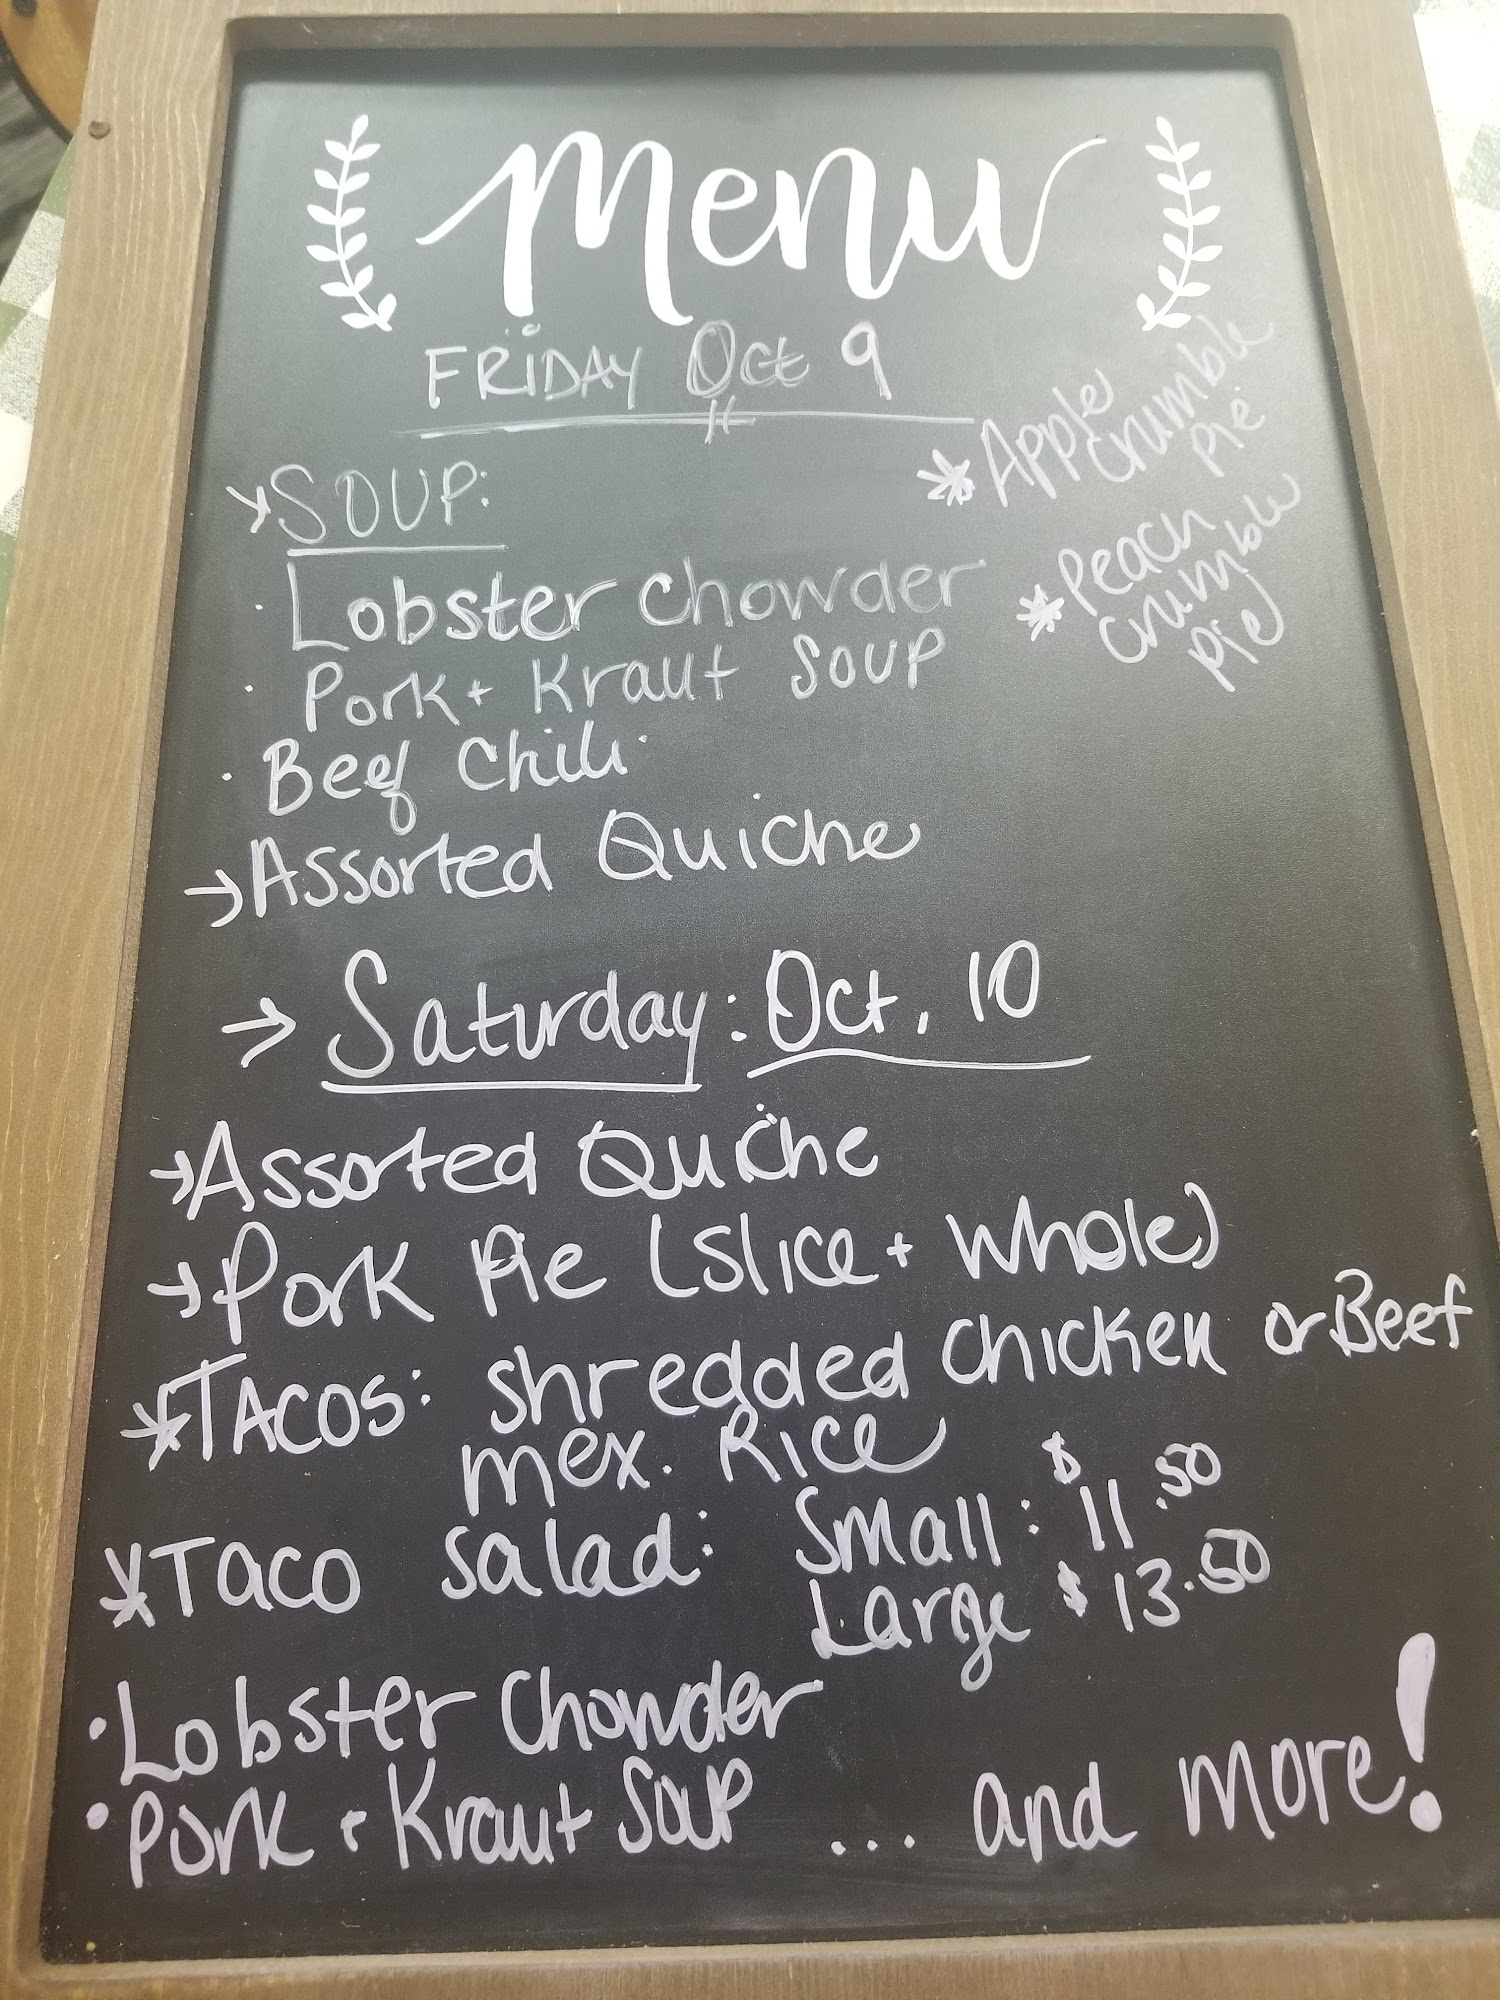 Menu
FRIDAY Oct 9
* Apple
crumble
pie
* Peach
crumble
pie
SOUP:
· Lobster Chowder
· Pork + Kraut Soup
· Beef Chili
→ Assorted Quiche
→ Saturday: Oct. 10
→ Assorted Quiche
→ Pork Pie (Slice + Whole)
* TACOS: Shredded Chicken or Beef
mex. Rice
* Taco Salad: Small: $11.50
Large $13.50
• Lobster Chowder
• Pork + Kraut Soup ... and more!